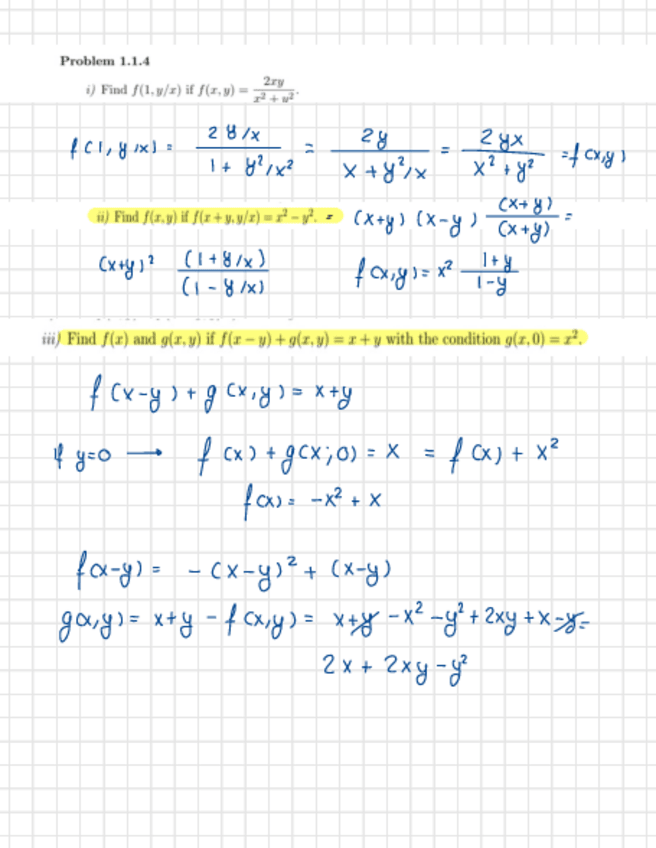 Problem 1.1.4
i) Find f(1, y/x) if f(x, y) = 2xy / (x² + y²).
f(1, y/x) = (2 y/x) / (1 + y²/x²) = 2y / (x + y²/x) = 2yx / (x² + y²) = f(x,y)
ii) Find f(x, y) if f(x + y, y/x) = x² − y². = (x+y) (x−y) (x+y)/(x+y) =
(x+y)² (1 + y/x) / (1 − y/x) f(x,y) = x² (1+y)/(1−y)
iii) Find f(x) and g(x, y) if f(x − y) + g(x, y) = x + y with the condition g(x, 0) = x².
f(x−y) + g(x,y) = x+y
If y=0 → f(x) + g(x;0) = x = f(x) + x²
f(x) = −x² + x
f(x−y) = −(x−y)² + (x−y)
g(x,y) = x+y − f(x,y) = x+y −x² −y² + 2xy + x −y =
2x + 2xy − y²